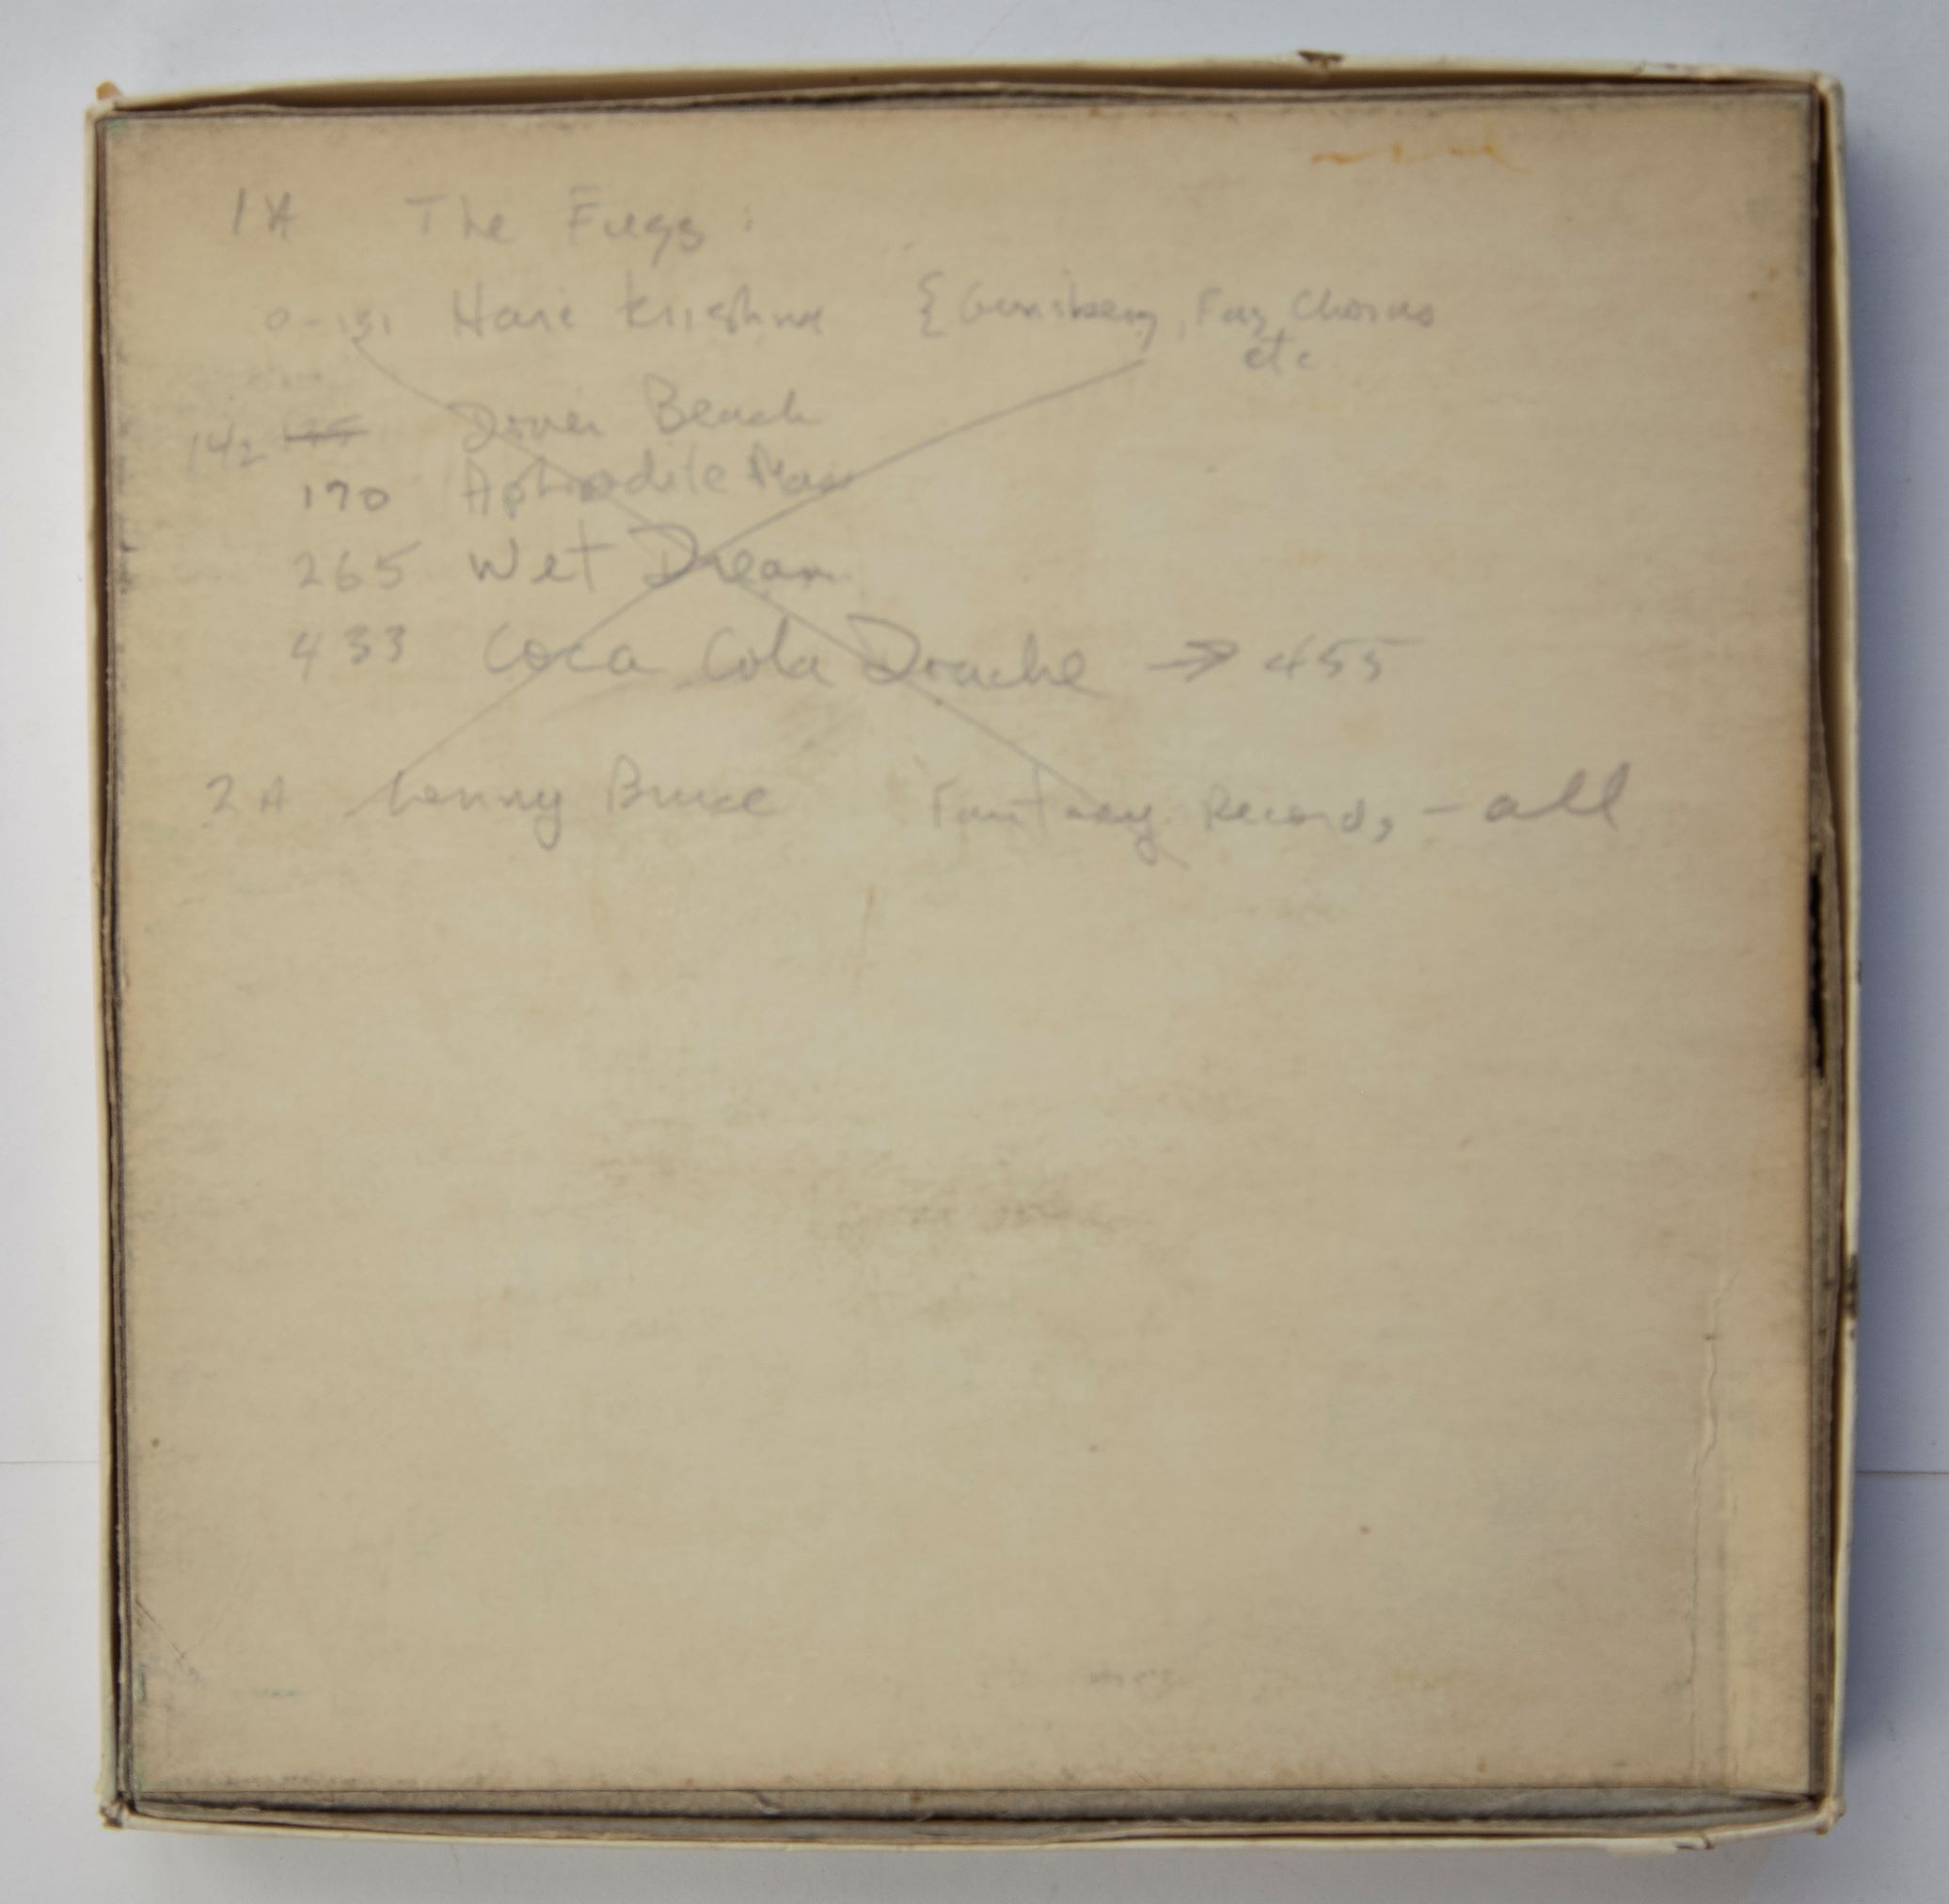 1A The Fugs:
0-131 Hare Krishna { Ginsberg, Fug Chorus
etc
142 Dover Beach
170 Aphrodite Mass
265 Wet Dream
433 Coca Cola Douche → 455
2A Lenny Bruce Fantasy Records - all